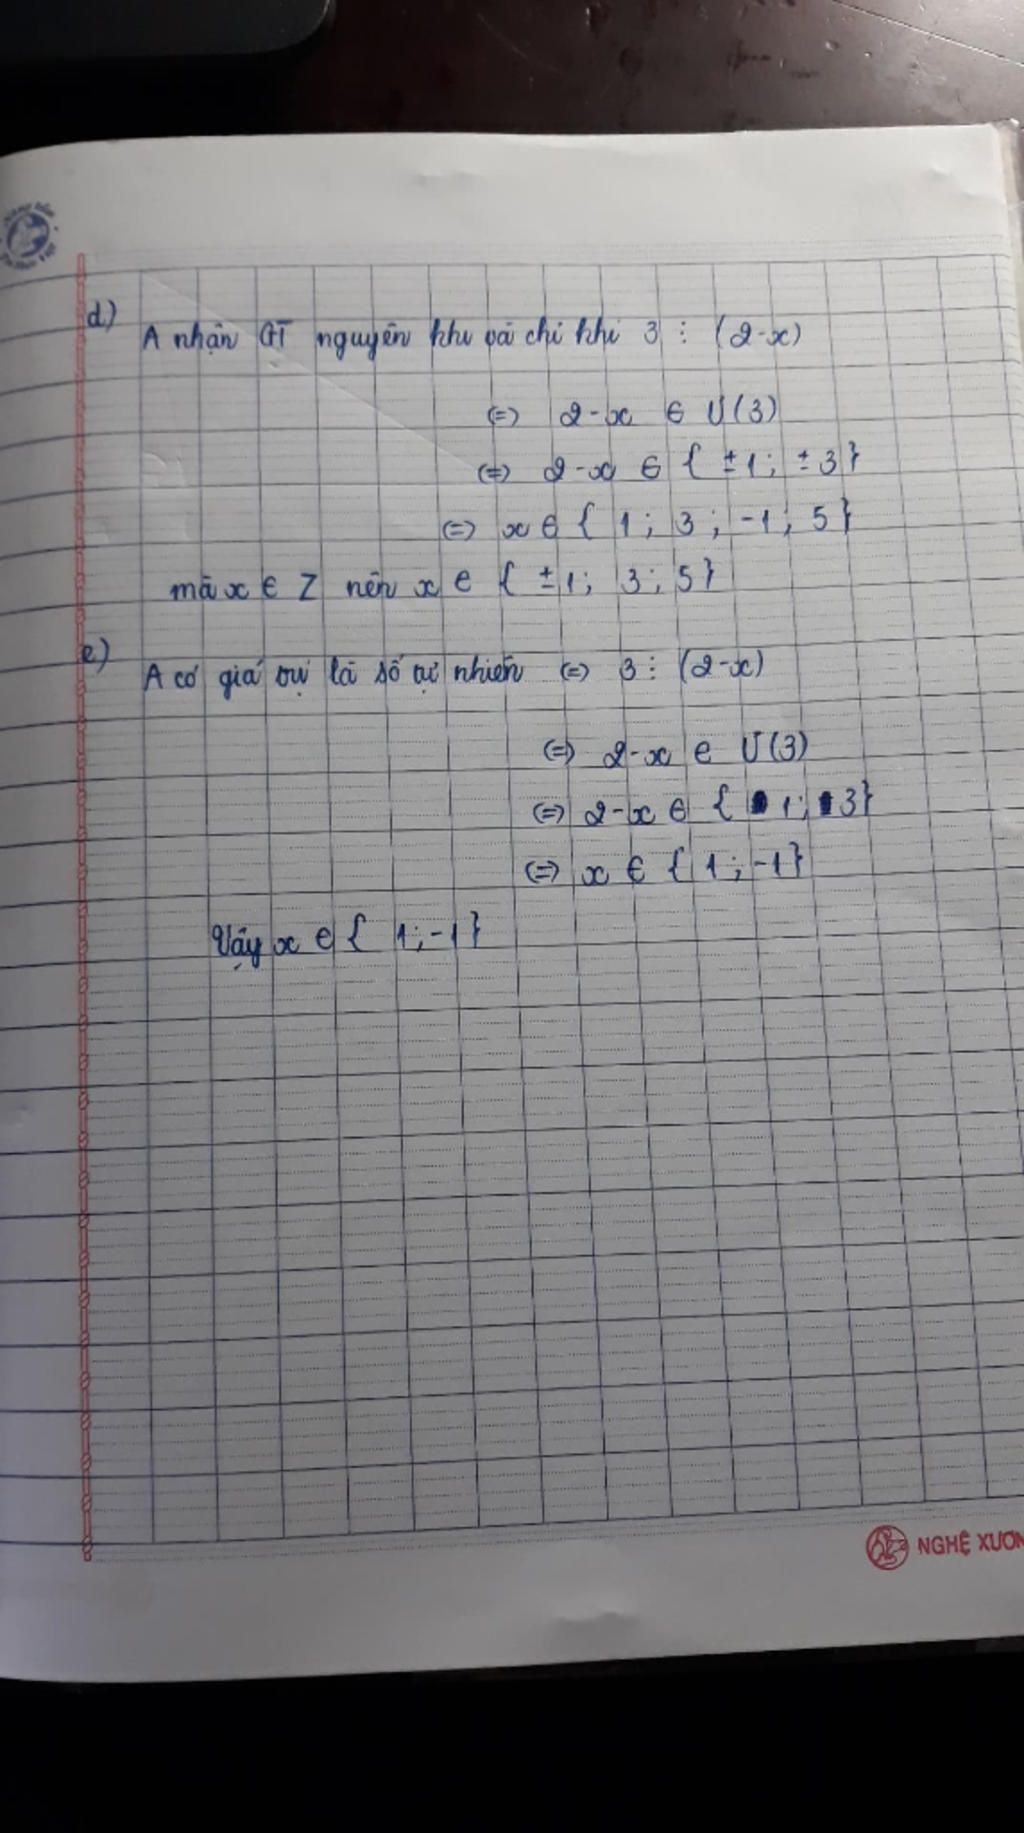 d)
A nhận GT nguyên khi và chỉ khi 3 ⋮ (2-x)
(=) 2-x ∈ Ư(3)
(=) 2-x ∈ { ±1; ±3}
(=) x ∈ { 1; 3; -1; 5}
mà x ∈ Z nên x ∈ { ±1; 3; 5}
e)
A có giá trị là số tự nhiên (=) 3 ⋮ (2-x)
(=) 2-x ∈ Ư(3)
(=) 2-x ∈ { 1; 3}
(=) x ∈ { 1; -1}
Vậy x ∈ { 1; -1}
NGHỆ XƯƠN